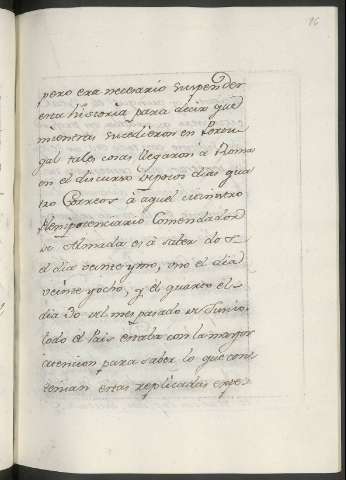 76
pero era necesario suspender
esta historia para decir que
mientras sucedieron en Portu
gal tales cosas llegaron à Roma
en el discurso de pocos dias qua
tro Correos à aquel Ministro
Plenipotenciario Comendador
de Almada es à saber dos
el dia veinte y uno, uno el dia
veinte y ocho, y el quarto el
dia 30 del mes pasado de Junio
todo el Pais estaba con la mayor
atencion para saber lo que con
tenian estas replicadas expe